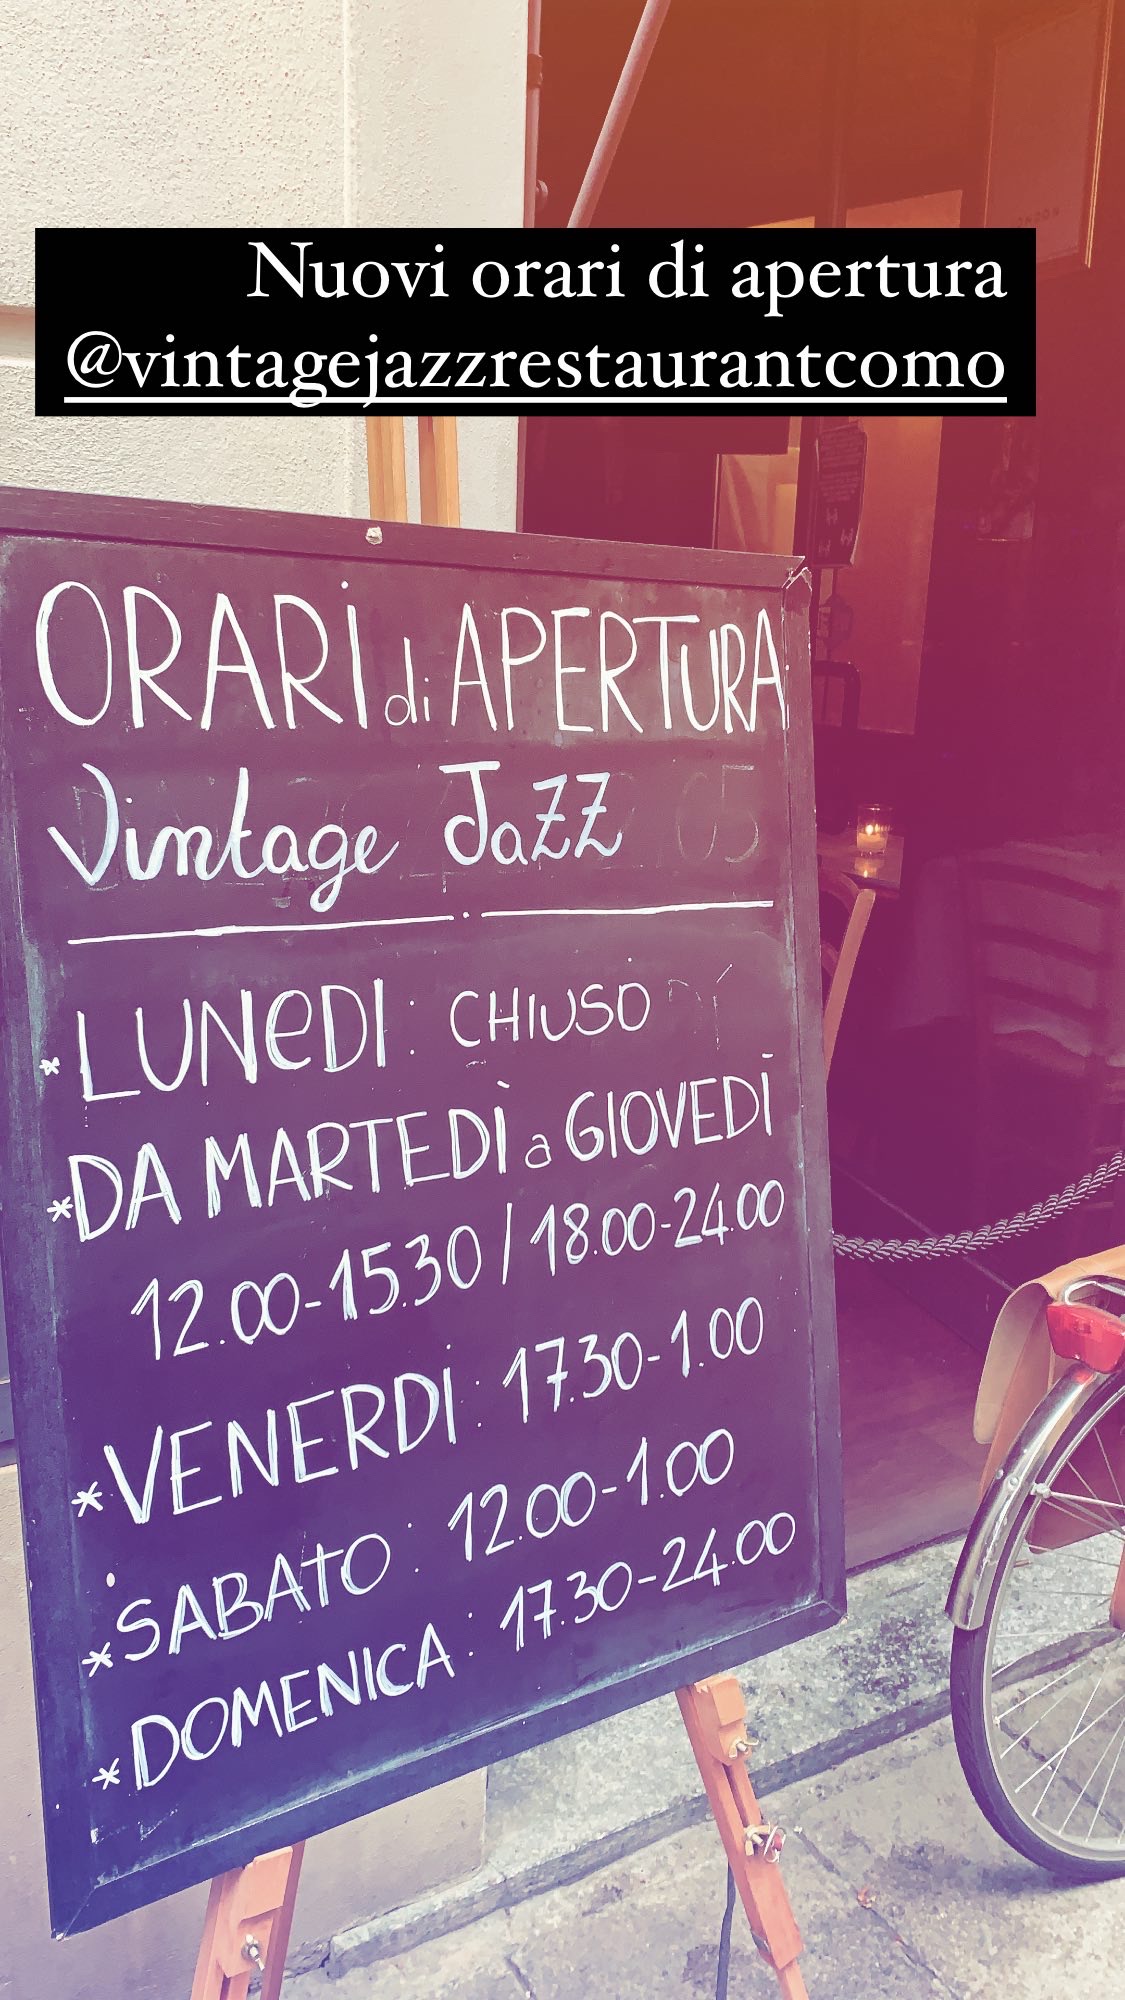 Nuovi orari di apertura
@vintagejazzrestaurantcomo
ORARI di APERTURA
Vintage JaZZ
* LUNeDI: CHIUSO
* DA MARTEDÌ a GIOVEDÌ
12.00-15.30 / 18.00-24.00
* VENERDI: 17.30-1.00
* SABATO: 12.00-1.00
* DOMENICA: 17.30-24.00